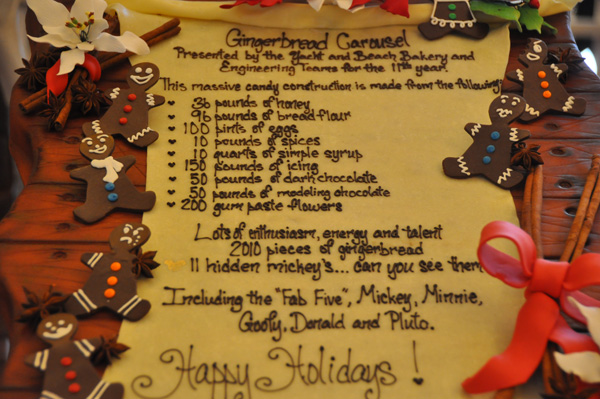 Gingerbread Carousel
Presented by the Yacht and Beach Bakery and
Engineering Teams for the 11th year.
This massive candy construction is made from the following:
♥ 36 pounds of honey
♥ 96 pounds of bread flour
♥ 100 pints of eggs
♥ 10 pounds of spices
♥ 10 quarts of simple syrup
♥ 150 pounds of icing
♥ 50 pounds of dark chocolate
♥ 50 pounds of modeling chocolate
♥ 200 gum paste flowers
Lots of enthusiasm, energy and talent
2010 pieces of gingerbread
11 hidden mickey's... can you see them
Including the "Fab Five", Mickey, Minnie,
Goofy, Donald and Pluto.
Happy Holidays!